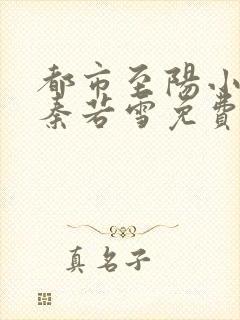 都市至陽小
秦若雪免費
真名子